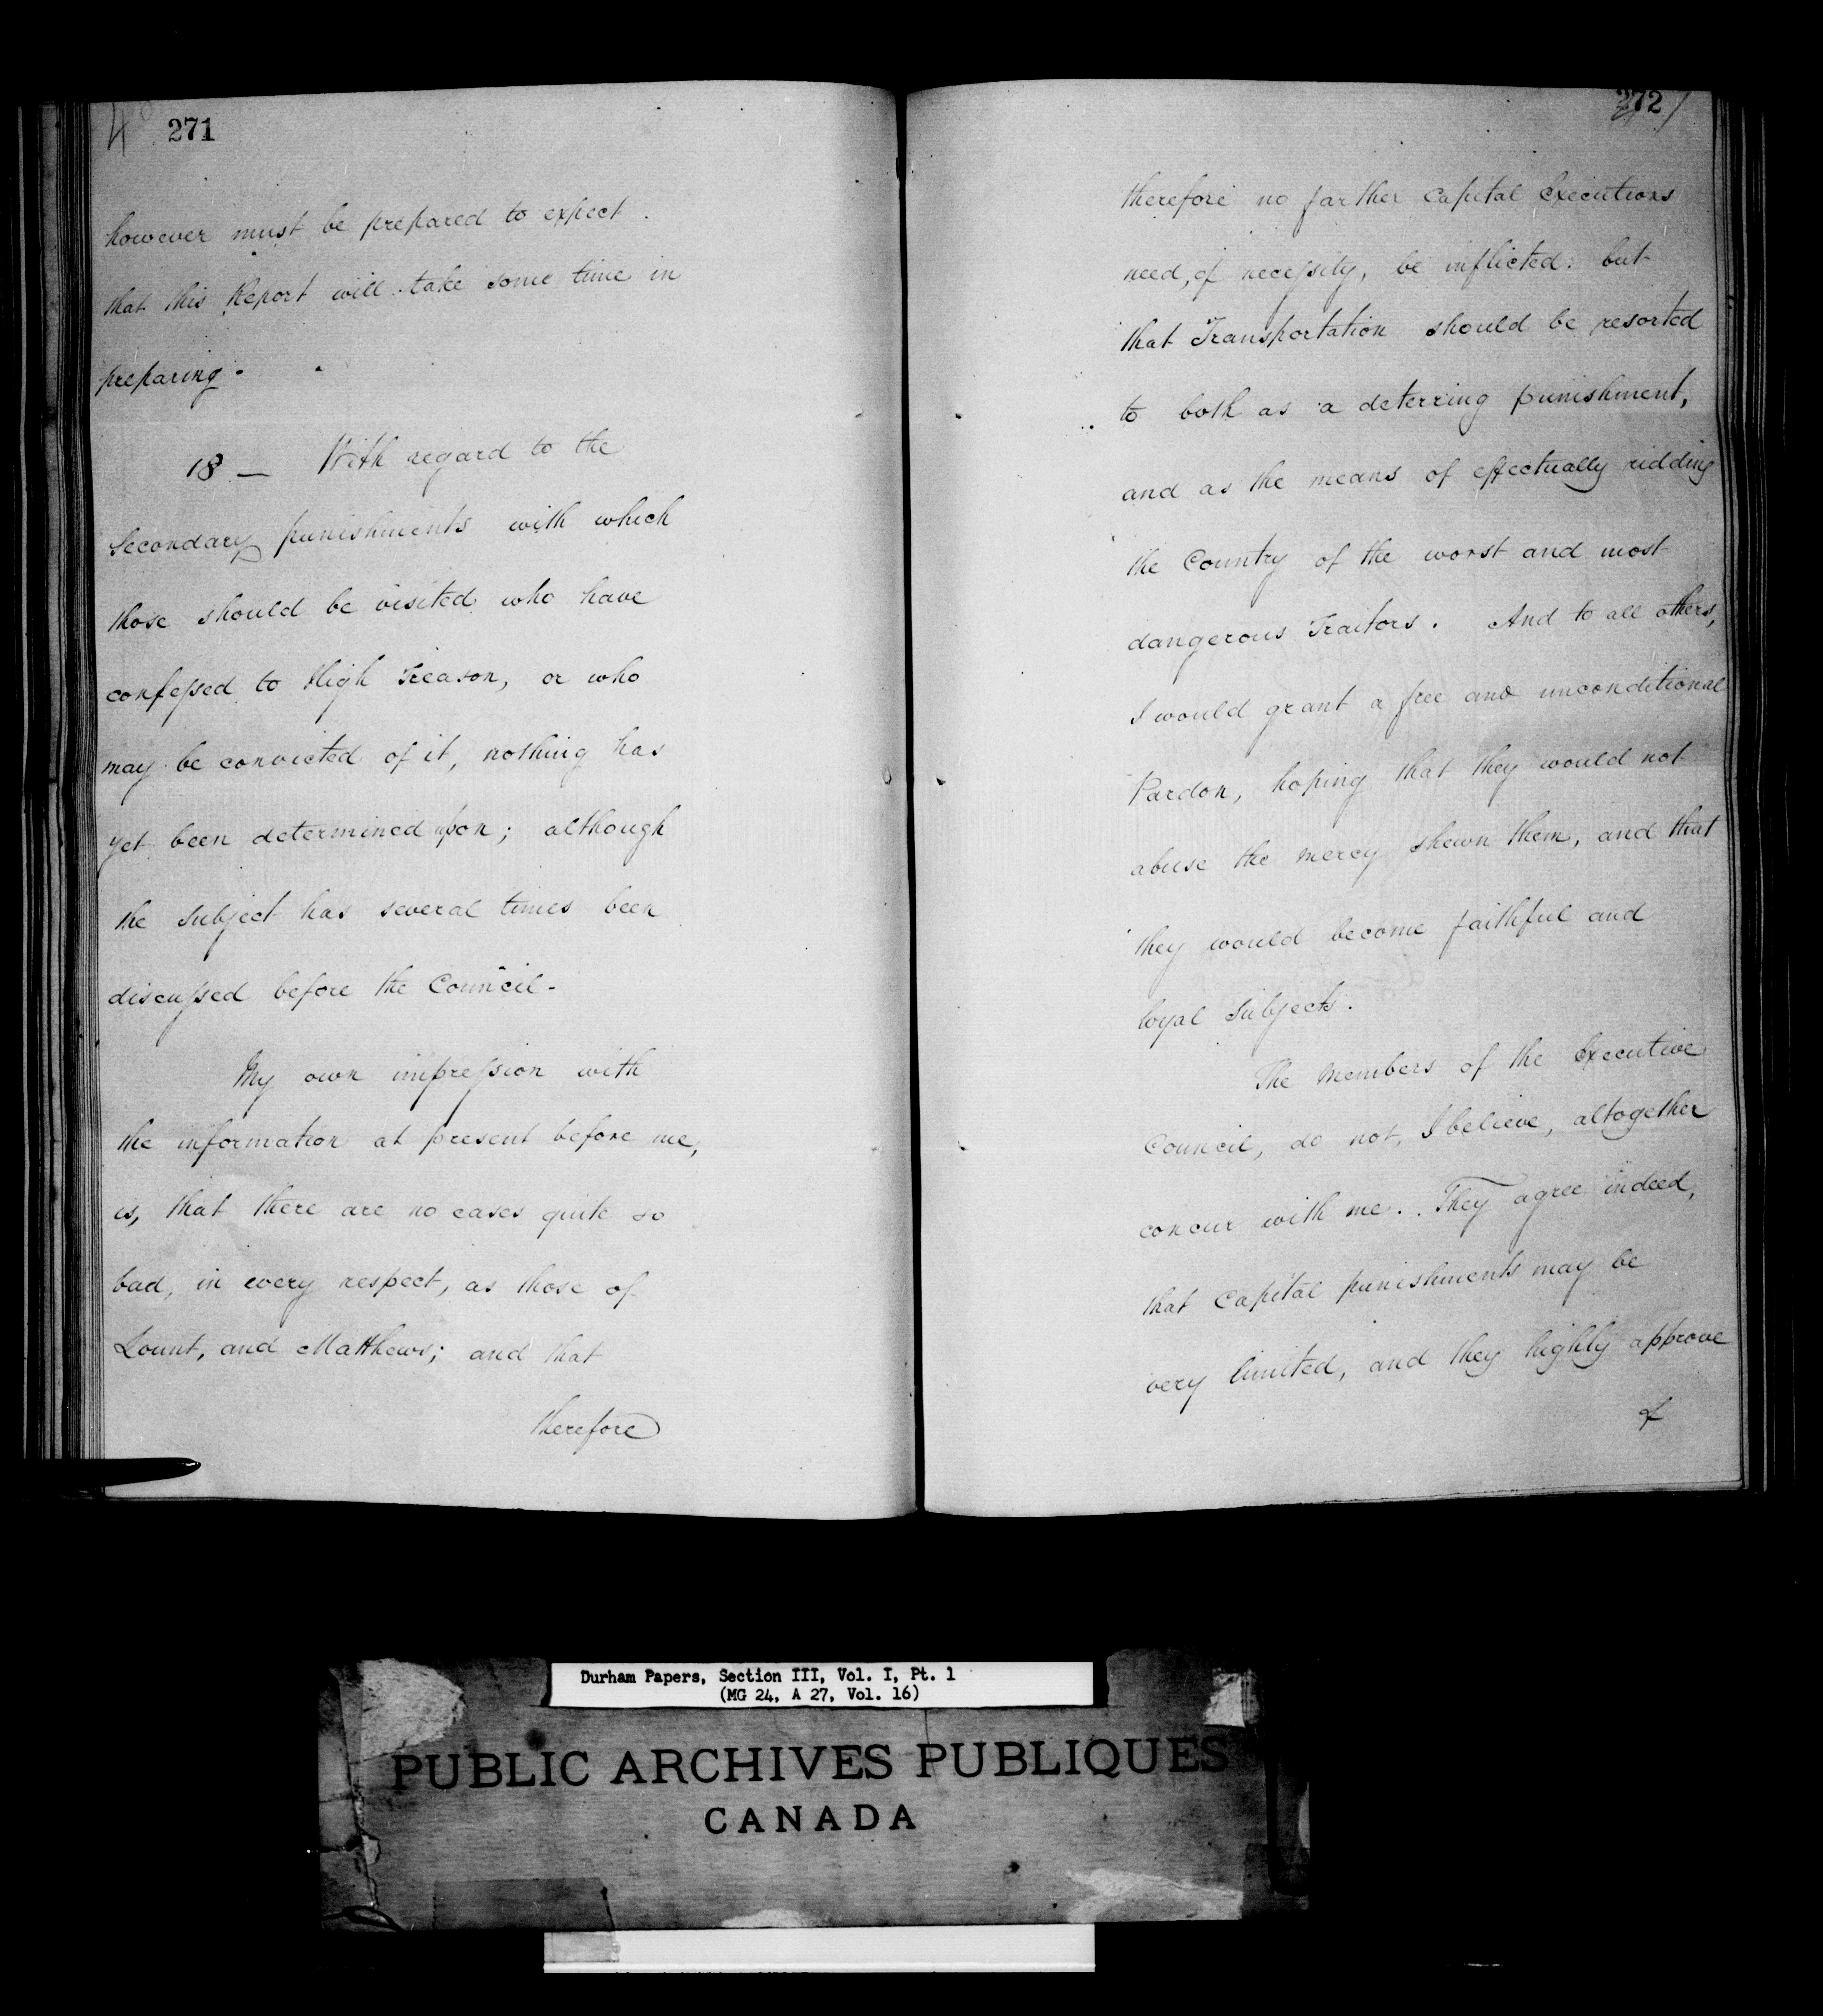 271
however must be prepared to expect
that this Report will take some time in
preparing.
18 — With regard to the
Secondary punishments with which
those should be visited who have
confessed to High Treason, or who
may be convicted of it, nothing has
yet been determined upon; although
the Subject has several times been
discussed before the Council.
My own impression with
the information at present before me,
is, that there are no cases quite so
bad, in every respect, as those of
Lount, and Matthews; and that
therefore
272
therefore no farther Capital Executions
need, of necessity, be inflicted: but
that Transportation should be resorted
to both as a deterring punishment,
and as the means of effectually ridding
the Country of the worst and most
dangerous Traitors. And to all others,
I would grant a free and unconditional
Pardon, hoping that they would not
abuse the mercy shewn them, and that
they would become faithful and
loyal Subjects.
The Members of the Executive
Council, do not, I believe, altogether
concur with me. They agree indeed,
that Capital punishments may be
very limited, and they highly approve
of
Durham Papers, Section III, Vol. I, Pt. 1
(MG 24, A 27, Vol. 16)
PUBLIC ARCHIVES PUBLIQUES
CANADA